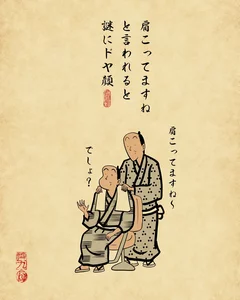 肩こってますね
と言われると
謎にドヤ顔
肩こってますね〜
でしょ？